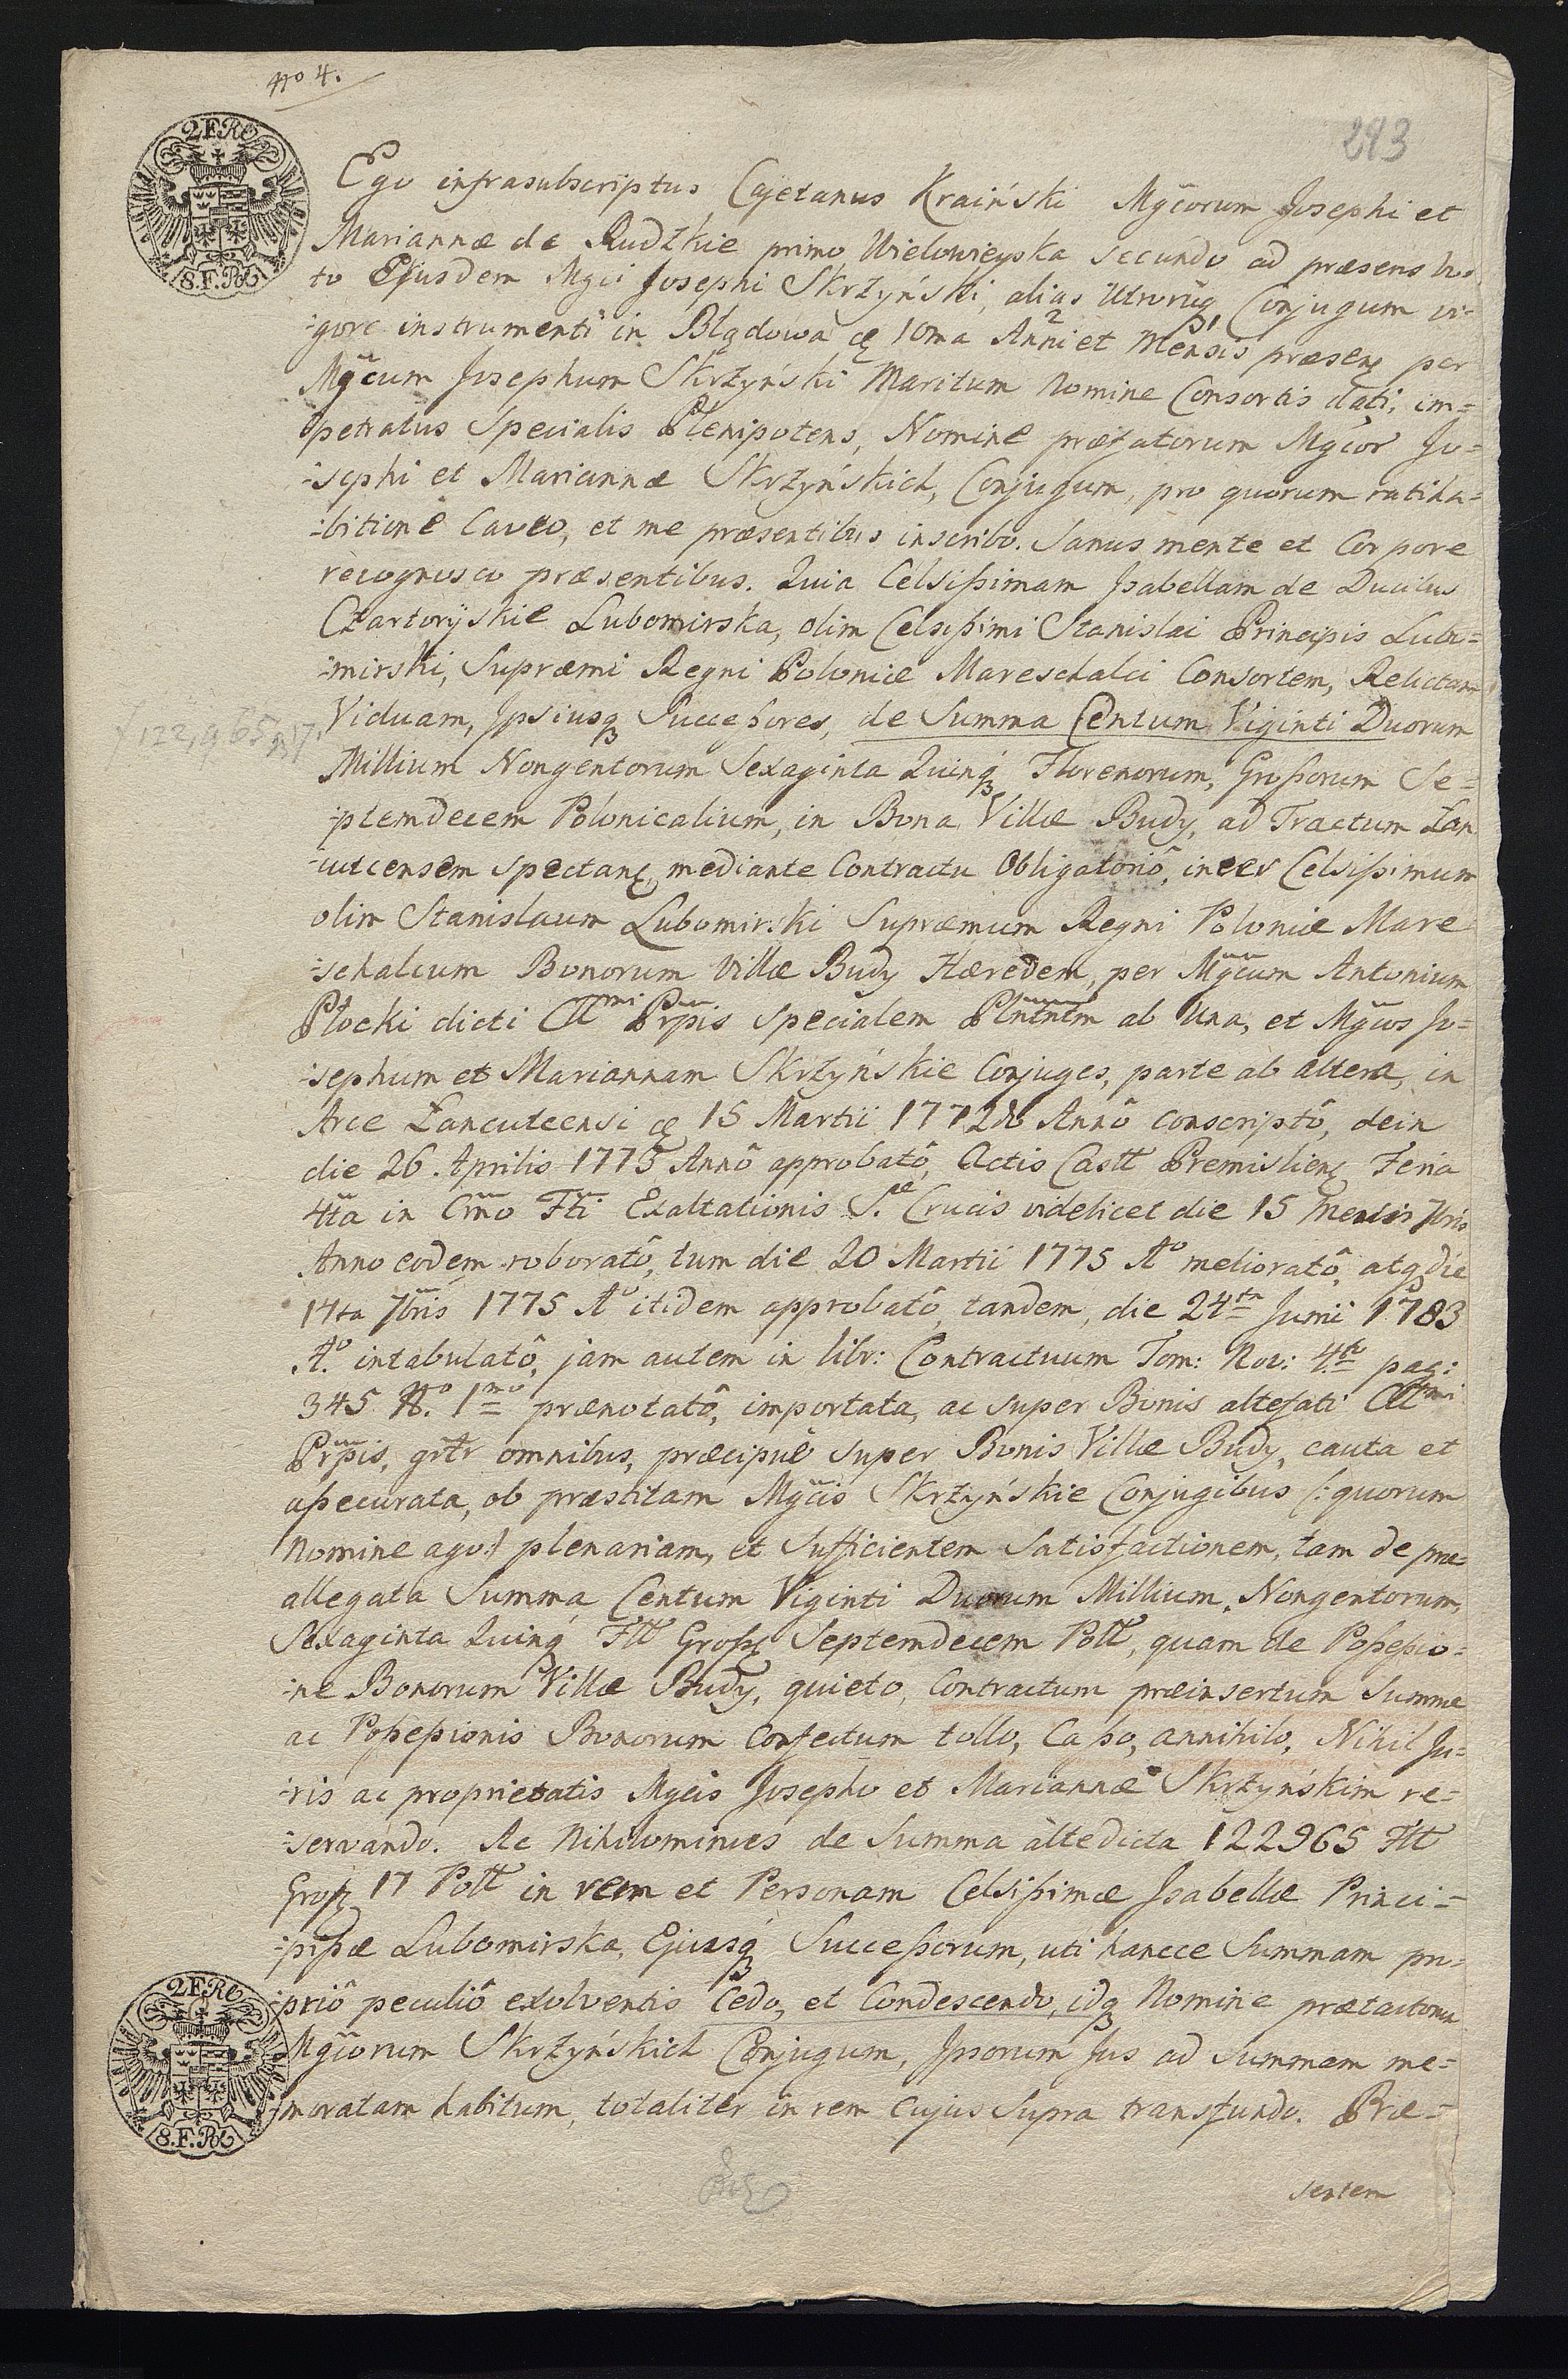 No 4.
293
2 F. Rh.
8. F. Pol.
Ego infrasubscriptus Cajetanus Kraiński Mgcorum Josephi et
Mariannæ de Rudzkie primo Wielowieyska secundo ad præsens vo-
to Ejusdem Mgci Josephi Skrzyński, alias Utrorūq Conjugum vi-
-gore instrumenti in Blądowa 10ma Anni et Mensis præsen per
Mgcum Josephum Skrzyński Maritum Nomine Consortis dati, im=
petratus Specialis Plenipotens, Nomine præfatorum Mgcor Jo=
-sephi et Mariannæ Skrzyńskich, Conjugum, pro quorum ratiha=
-bitione Caveo, et me præsentibus inscribo. Sanus mente et Corpore
recognosco præsentibus. Quia Celsissimam Isabellam de Ducibus
Czartoryskie Lubomirska, olim Celsissimi Stanislai Principis Lubo=
-mirski, Supræmi Regni Poloniæ Mareschalci Consortem, Relictam
f 122,965 17.
Viduam, Ipsiusq Successores, de Summa Centum Viginti Duorum
Millium Nongentorum Sexaginta Quinq Florenorum, Grossorum Se=
-ptemdecem Polonicalium, in Bona Villæ Budy, ad Tractum Łan
-cutcensem spectan mediante Contractu Obligatoriô, inter Celsissimum
olim Stanislaum Lubomirski Supræmum Regni Poloniæ Mare
-schalcum Bonorum Villæ Budy Hæredem, per Mgcum Antonium
Płocki dicti Clmi Prpis Specialem Plntntm ab Una, et Mgcos Jo=
-sephum et Mariannam Skrzyńskie Conjuges, parte ab altera, in
Arce Łancutcensi 15 Martii 1772do Annô conscriptô, dein
die 26. Aprilis 1773 Annô approbatô, Actis Castt Premislien Feria
4ta in Cmo Fti Exaltationis S.æ Crucis videlicet die 15 Mensis 7bris
Anno eodem roboratô, tum die 20 Martii 1775 Ao melioratô, atq die
14ta 7bris 1775 Ao itidem approbatô, tandem, die 24ta Junii 1783
A.o intabulatô, jam autem in libr: Contractuum Tom: Nov: 4to pag:
345 No. 1mo prænotatô, importata, ac super Bonis altefati Clmi
Prpis, grtr omnibus, præcipuè super Bonis Villæ Budy, cauta et
assecurata, ob præstitam Mgcis Skrzyńskie Conjugibus (: quorum
Nomine ago :) plenariam, et Sufficientem Satisfactionem, tam de præ-
allegata Summa Centum Viginti Duorum Millium, Nongentorum,
Sexaginta Quinq Fltt Gross Septemdecem Poltt, quam de Possessio-
-ne Bonorum Villæ Budy, quieto, Contractum præinsertum Summæ
ac Possessionis Bonorum Confectum tollo, Casso, annihilo, Nihil Ju=
-ris ac proprietatis Mgcis Josepho et Mariannæ Skrzyńskim re-
-servando. Ac Nihilominus de Summa altedicta 122965 Fltt
Gross 17 Poltt in rem et Personam Celsissimæ Isabellæ Princi-
-pissæ Lubomirska, Ejusq Successorum, uti hancce Summam pro-
-priô peculiô exolventis Cedo, et Condescendo, idq Nomine prætactorum
Mgcorum Skrzyńskich Conjugum, Ipsorum Jus ad Summam me=
-moratam habitum, totaliter in rem cujus Supra transfundo. Præ-
sentem
2 F. Rh.
8. F. Pol.